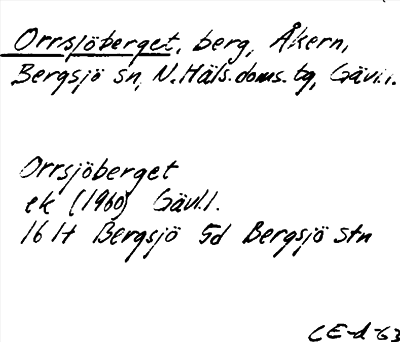 Orrsjöberget, berg, Åkern,
Bergsjö sn, N. Häls. doms. tg, Gävl.l.
Orrsjöberget
ek (1960) Gävl.l.
16 H Bergsjö 5d Bergsjö stn
CE-d-63